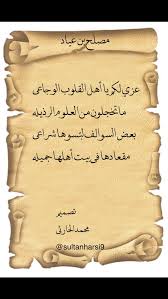 مصلح بن عياد
عزي لكم يا أهل القلوب الوجاعى
ما تخجلون من العلوم الرذيله
بعض السوالف لبسوها شراعى
مقعادها في بيت أهلها جميله
تصميم
محمد الحارثي
@sultanharsi9